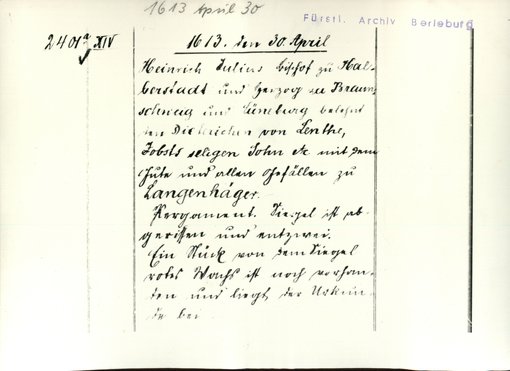 1613 April 30
Fürstl. Archiv Berleburg
2401a XIV
1613. den 30. April
Heinrich Julius bischof zu Hal-
berstadt und herzog zu Braun-
schweig und Lüneburg belehnt
den Dietrichen von Lenthe,
Jobsts seligen Sohn etc. mit dem
Gute und allen Gefällen zu
Langenhäger.
Pergament. Siegel ist ab-
gerissen und entzwei.
Ein Stück von dem Siegel
rotes Wachs ist noch vorhan-
den und liegt der Urkun-
de bei